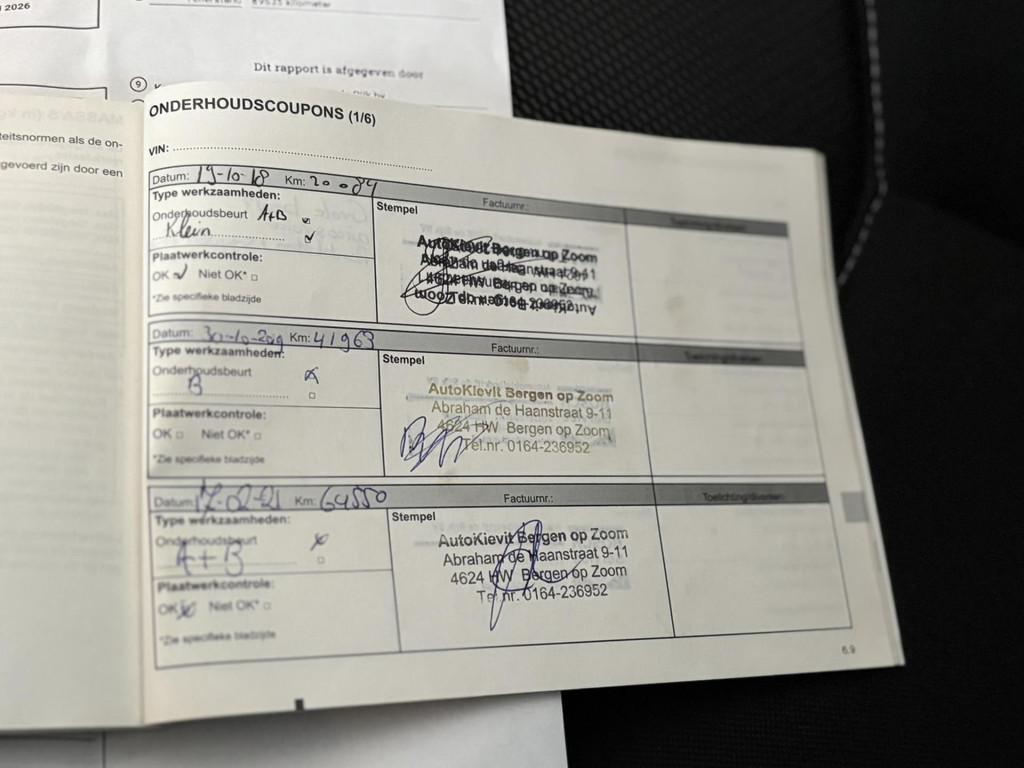 2026
89525 kilometer
Dit rapport is afgegeven door
9
teitsnormen als de on-
gevoerd zijn door een
ONDERHOUDSCOUPONS (1/6)
VIN:
Datum: 19-10-18 Km: 20.084 Factuurnr.:
Type werkzaamheden:
Stempel
Onderhoudsbeurt A+B
Klein
Plaatwerkcontrole:
OK Niet OK*
*Zie specifieke bladzijde
AutoKievit Bergen op Zoom
Abraham de Haanstraat 9-11
4624 HW Bergen op Zoom
Tel.nr. 0164-236952
Datum: 30-10-2019 Km: 41963 Factuurnr.:
Type werkzaamheden:
Stempel
Onderhoudsbeurt
B
Plaatwerkcontrole:
OK Niet OK*
*Zie specifieke bladzijde
AutoKievit Bergen op Zoom
Abraham de Haanstraat 9-11
4624 HW Bergen op Zoom
Tel.nr. 0164-236952
Datum: 17-02-21 Km: 64550 Factuurnr.: Toelichting/diversen
Type werkzaamheden:
Stempel
Onderhoudsbeurt
A+B
Plaatwerkcontrole:
OK Niet OK*
*Zie specifieke bladzijde
AutoKievit Bergen op Zoom
Abraham de Haanstraat 9-11
4624 HW Bergen op Zoom
Tel.nr. 0164-236952
6.9